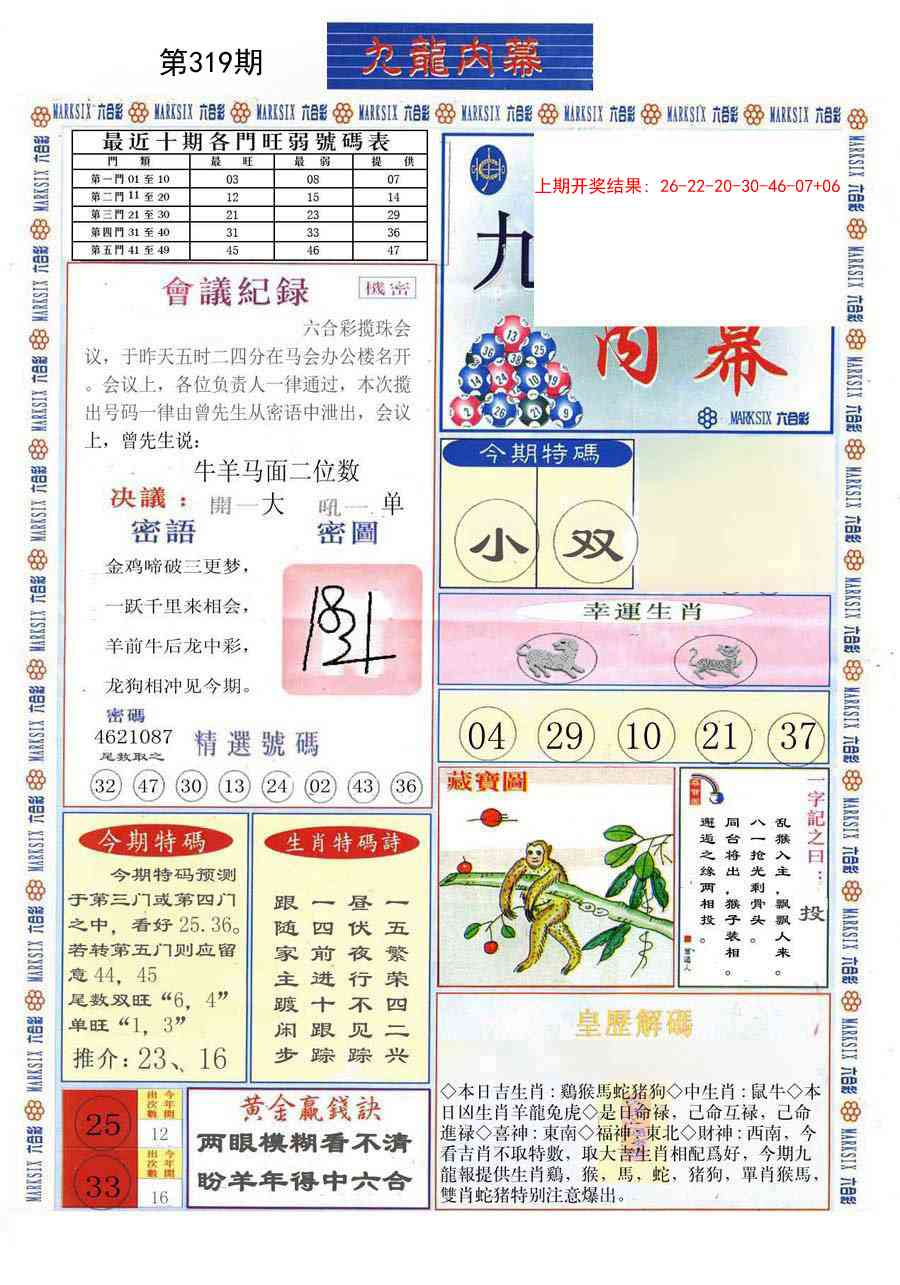 第319期
九龍内幕
MARKSIX 六合彩 MARKSIX 六合彩 MARKSIX 六合彩 MARKSIX 六合彩 MARKSIX 六合彩 MARKSIX 六合彩 MARKSIX 六合彩 MARKSIX 六合彩
最近十期各門旺弱號碼表
門類 最旺 最弱 提供
第一門01至10 03 08 07
第二門11至20 12 15 14
第三門21至30 21 23 29
第四門31至40 31 33 36
第五門41至49 45 46 47
上期开奖结果：26-22-20-30-46-07+06
九
内幕
MARKSIX 六合彩
會議紀録
機密
六合彩揽珠会
议，于昨天五时二四分在马会办公楼名开
。会议上，各位负责人一律通过，本次揽
出号码一律由曾先生从密语中泄出，会议
上，曾先生说：
牛羊马面二位数
决議：開一大 吼一单
密語 密圖
金鸡啼破三更梦，
一跃千里来相会，
羊前牛后龙中彩，
龙狗相冲见今期。
密碼
4621087
尾数取之
精選號碼
32 47 30 13 24 02 43 36
今期特碼
小 双
幸運生肖
04 29 10 21 37
藏寶圖
一字記之曰：投
乱猴入主，飘飘人来。
八一抢光剩骨头。
同台将出，猴子装相。
邂逅之缘两相投。
今期特碼
今期特码预测
于第三门或第四门
之中，看好25.36。
若转第五门则应留
意44，45
尾数双旺“6，4”
单旺“1，3”
推介：23、16
生肖特碼詩
一五繁荣四二兴
昼伏夜行不见踪
一四前进十跟踪
跟随家主踱闲步
25
今年開出次數
12
33
今年開出次數
16
黄金贏錢訣
两眼模糊看不清
盼羊年得中六合
皇歷解碼
◇本日吉生肖：鷄猴馬蛇猪狗◇中生肖：鼠牛◇本
日凶生肖羊龍兔虎◇是日命禄，己命互禄，己命
進禄◇喜神：東南◇福神：東北◇財神：西南，今
看吉肖不取特數，取大吉生肖相配爲好，今期九
龍報提供生肖鷄，猴，馬，蛇，猪狗，單肖猴馬，
雙肖蛇猪特别注意爆出。